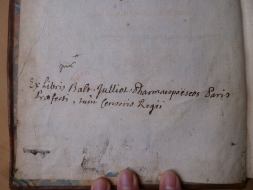 Ex Libris Balt. Julliot Pharmacopoeos Paris
Præfecti, tum Censoris Regii